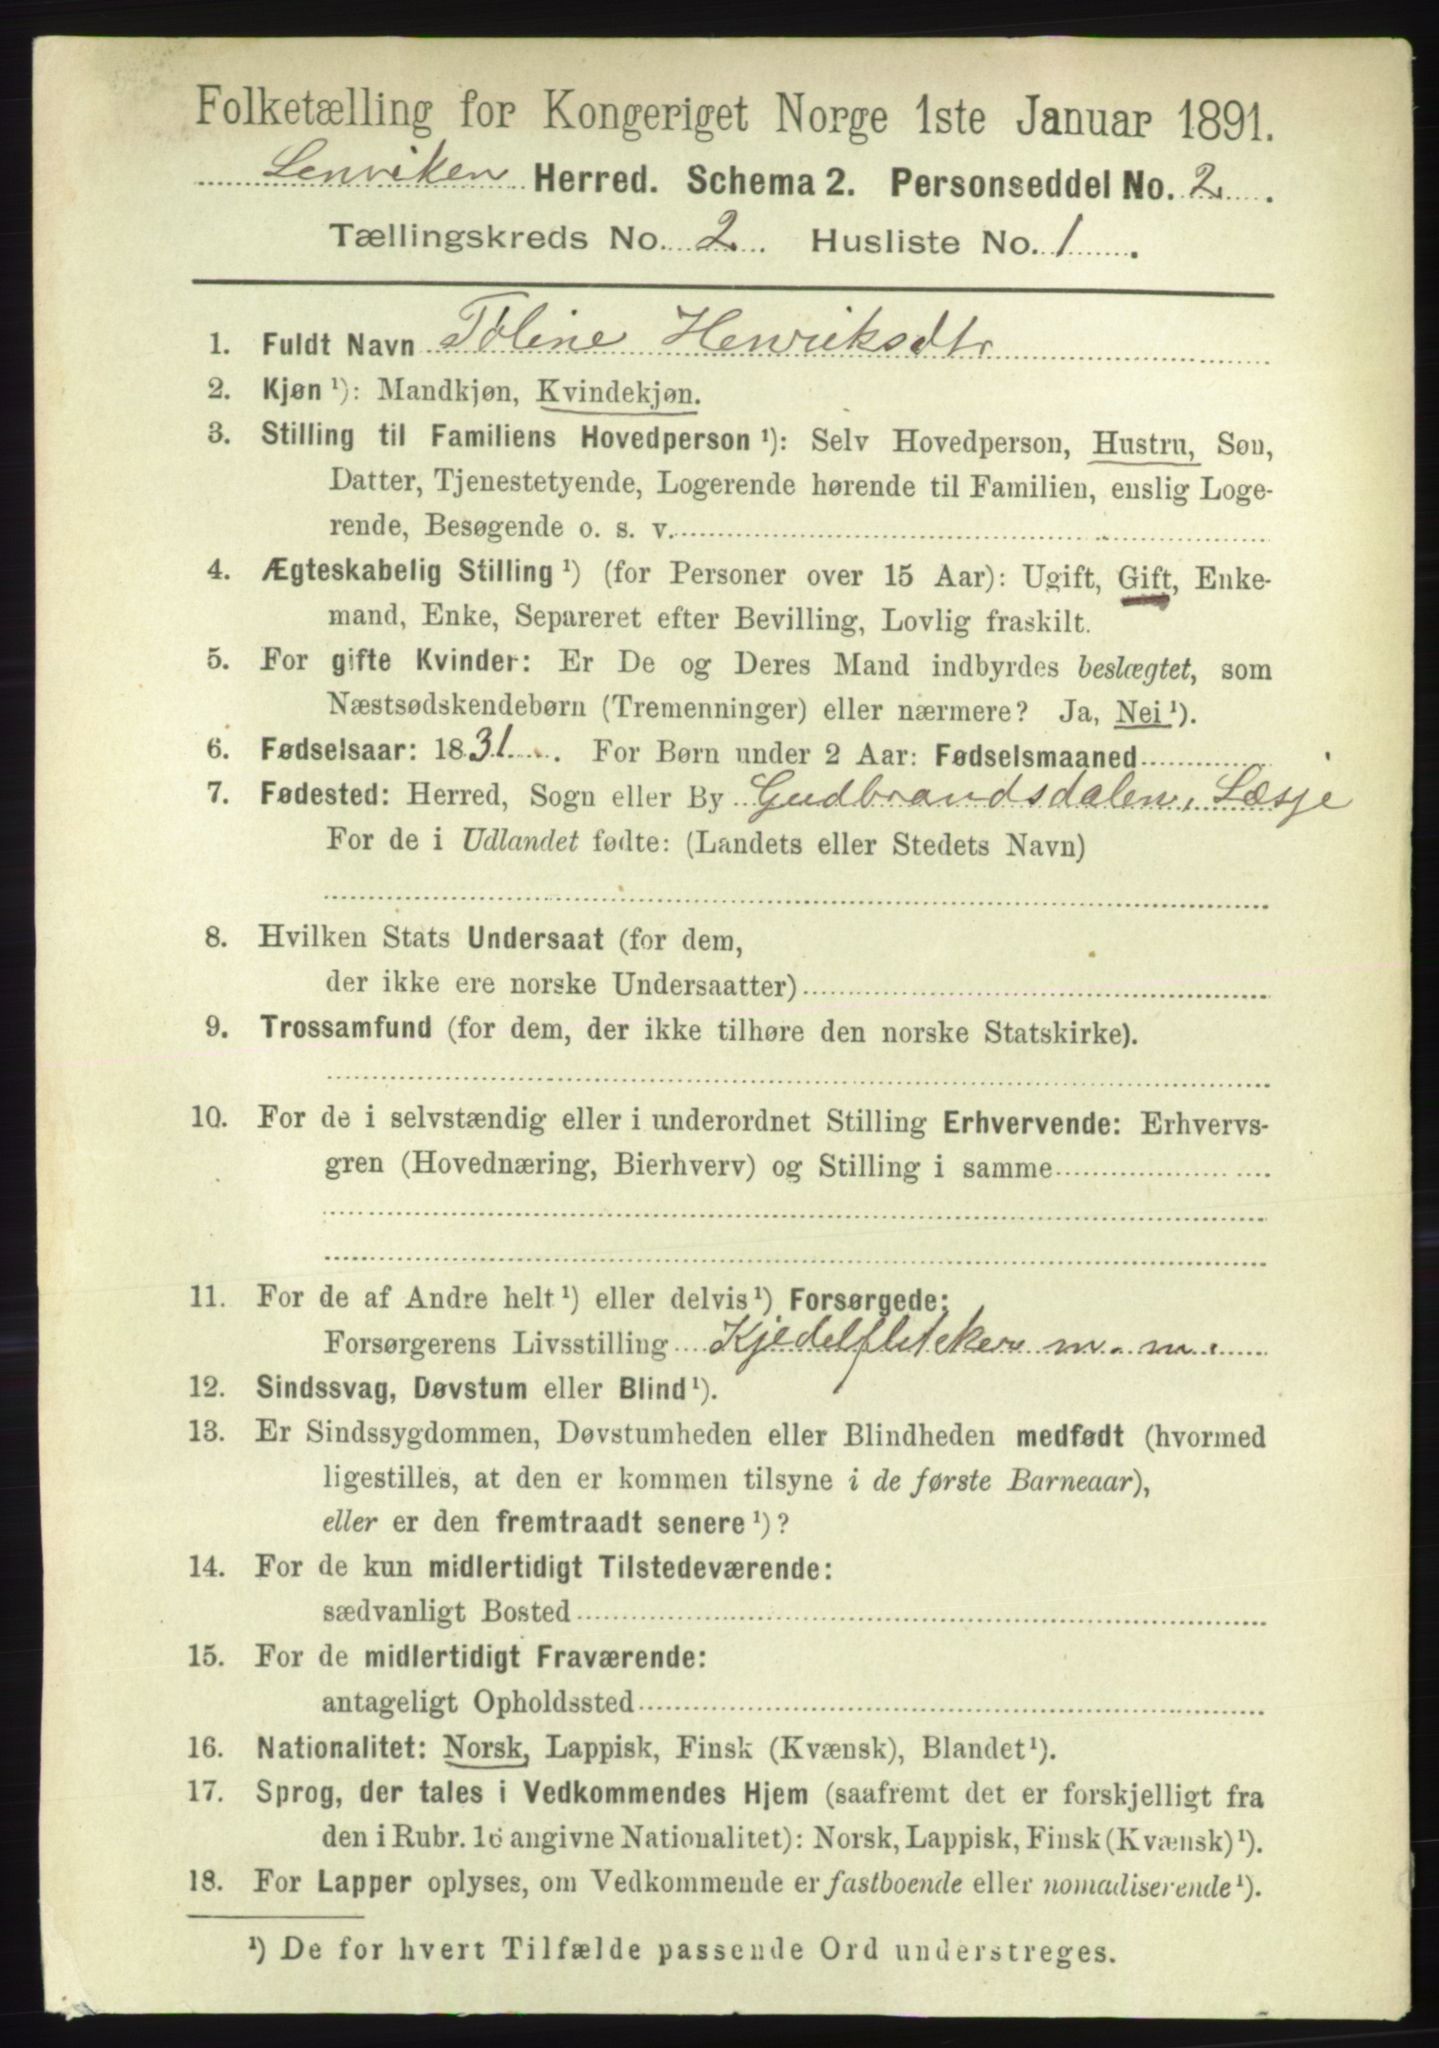 Folketælling for Kongeriget Norge 1ste Januar 1891.
Lenviken Herred. Schema 2. Personseddel No. 2.
Tællingskreds No. 2 Husliste No. 1.
1. Fuldt Navn Toline Henriksdtr
2. Kjøn ¹): Mandkjøn, Kvindekjøn.
3. Stilling til Familiens Hovedperson ¹): Selv Hovedperson, Hustru, Søn,
Datter, Tjenestetyende, Logerende hørende til Familien, enslig Loge-
rende, Besøgende o. s. v.
4. Ægteskabelig Stilling ¹) (for Personer over 15 Aar): Ugift, Gift, Enke-
mand, Enke, Separeret efter Bevilling, Lovlig fraskilt.
5. For gifte Kvinder: Er De og Deres Mand indbyrdes beslægtet, som
Næstsødskendebørn (Tremenninger) eller nærmere? Ja, Nei ¹).
6. Fødselsaar: 1831. For Børn under 2 Aar: Fødselsmaaned
7. Fødested: Herred, Sogn eller By Gudbrandsdalen, Læsje
For de i Udlandet fødte: (Landets eller Stedets Navn)
8. Hvilken Stats Undersaat (for dem,
der ikke ere norske Undersaatter)
9. Trossamfund (for dem, der ikke tilhøre den norske Statskirke).
10. For de i selvstændig eller i underordnet Stilling Erhvervende: Erhvervs-
gren (Hovednæring, Bierhverv) og Stilling i samme
11. For de af Andre helt ¹) eller delvis ¹) Forsørgede:
Forsørgerens Livsstilling Kjedelflikker m. m.
12. Sindssvag, Døvstum eller Blind ¹).
13. Er Sindssygdommen, Døvstumheden eller Blindheden medfødt (hvormed
ligestilles, at den er kommen tilsyne i de første Barneaar),
eller er den fremtraadt senere ¹)?
14. For de kun midlertidigt Tilstedeværende:
sædvanligt Bosted
15. For de midlertidigt Fraværende:
antageligt Opholdssted
16. Nationalitet: Norsk, Lappisk, Finsk (Kvænsk), Blandet ¹).
17. Sprog, der tales i Vedkommendes Hjem (saafremt det er forskjelligt fra
den i Rubr. 16 angivne Nationalitet): Norsk, Lappisk, Finsk (Kvænsk) ¹).
18. For Lapper oplyses, om Vedkommende er fastboende eller nomadiserende ¹).
¹) De for hvert Tilfælde passende Ord understreges.